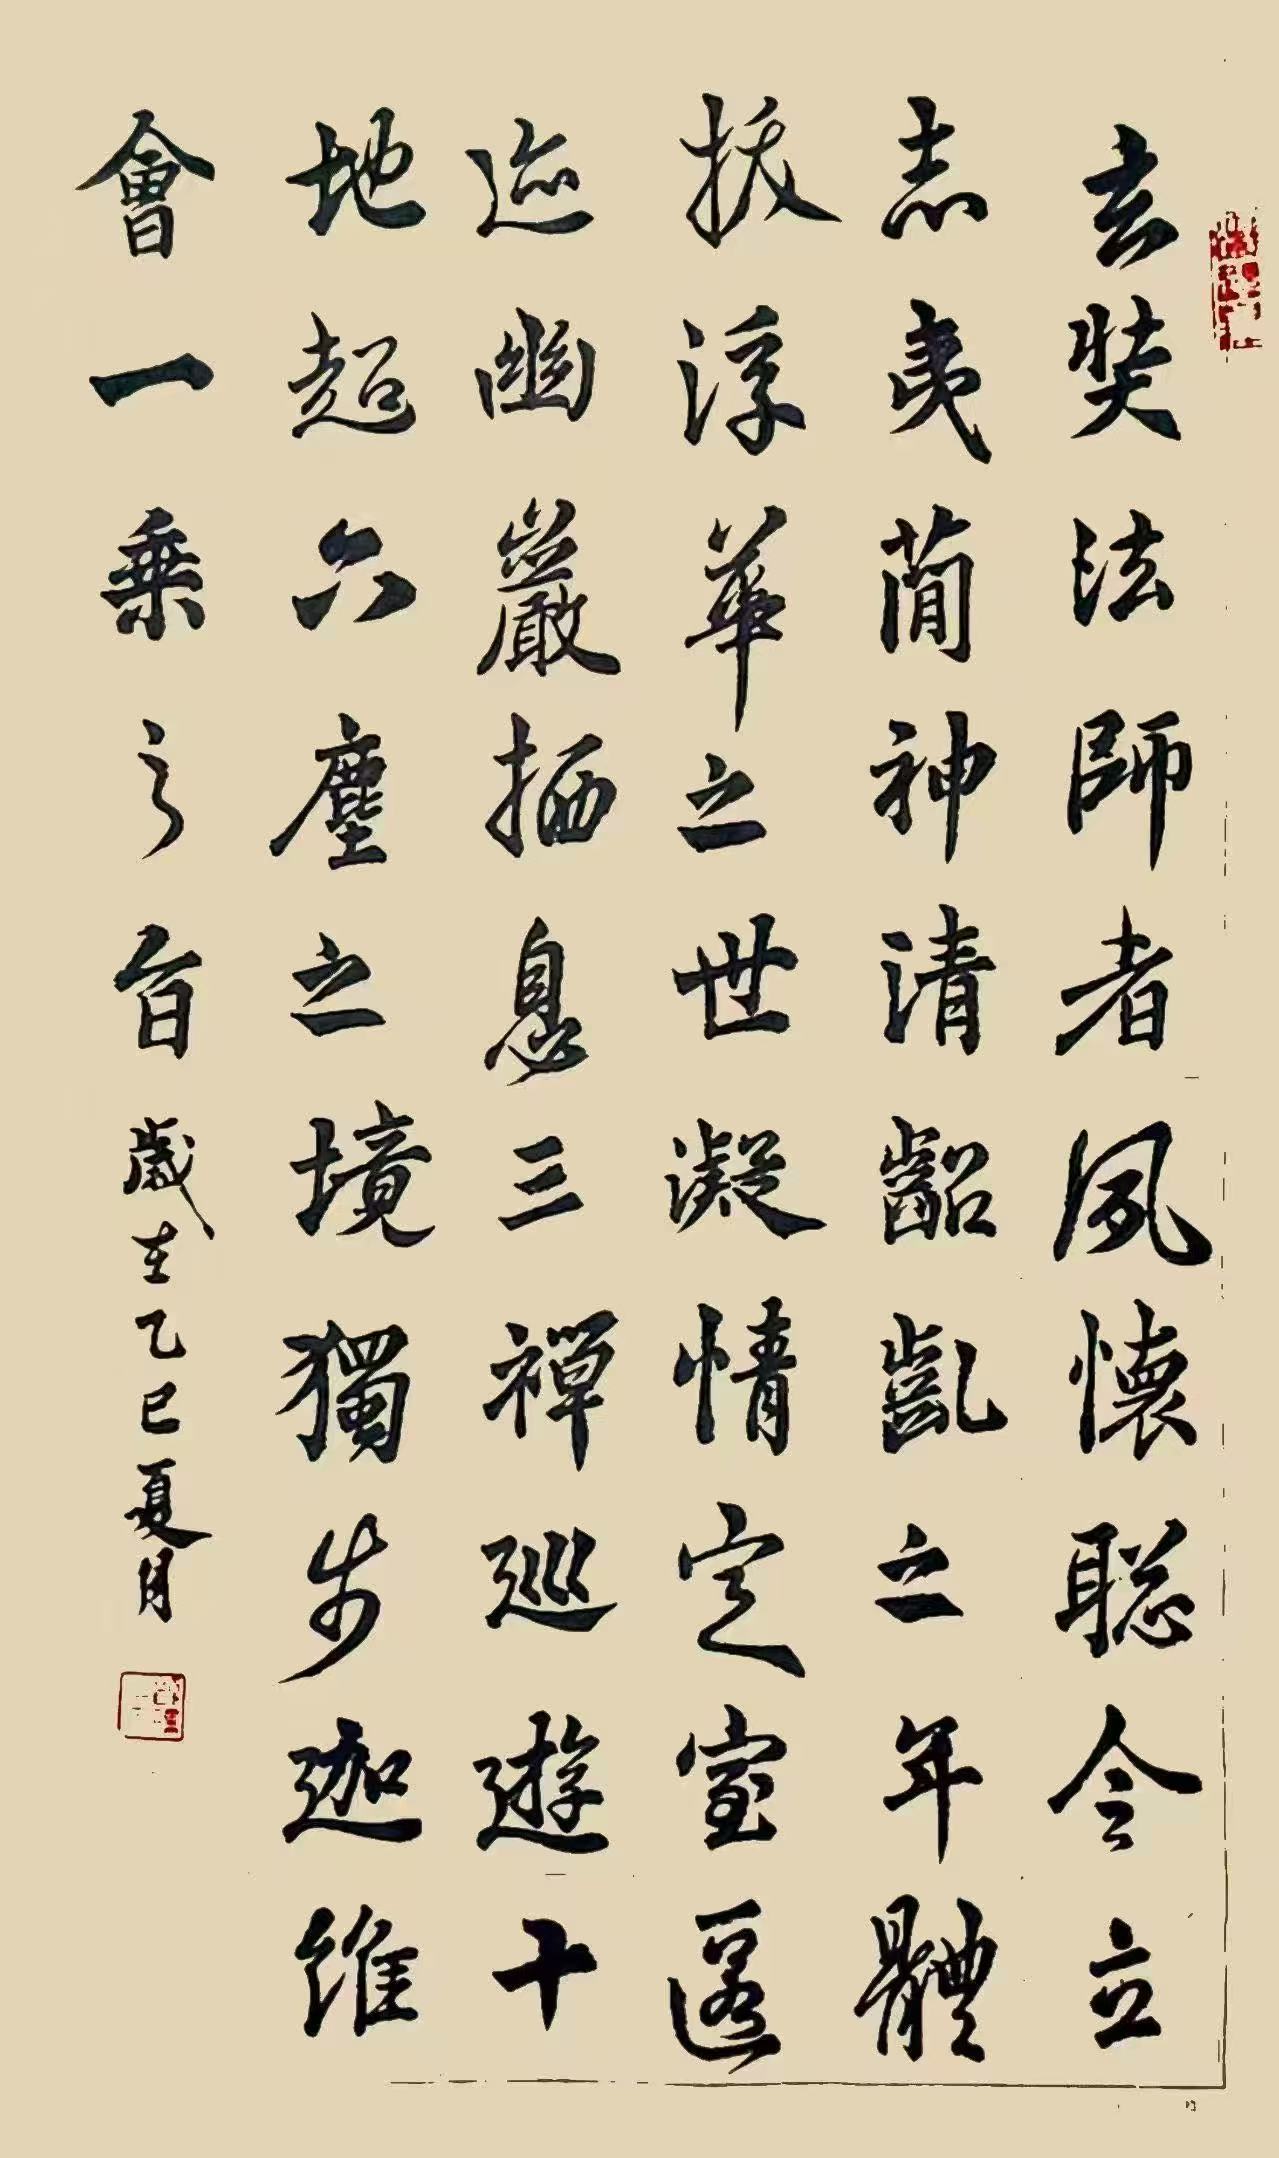 玄奘法師者夙懷聡令立
志夷蕳神清齠齓之年體
拔浮華之世凝情定室匿
迹幽巖栖息三禪巡遊十
地超六塵之境獨步迦維
會一乘之旨
歲在乙巳夏月